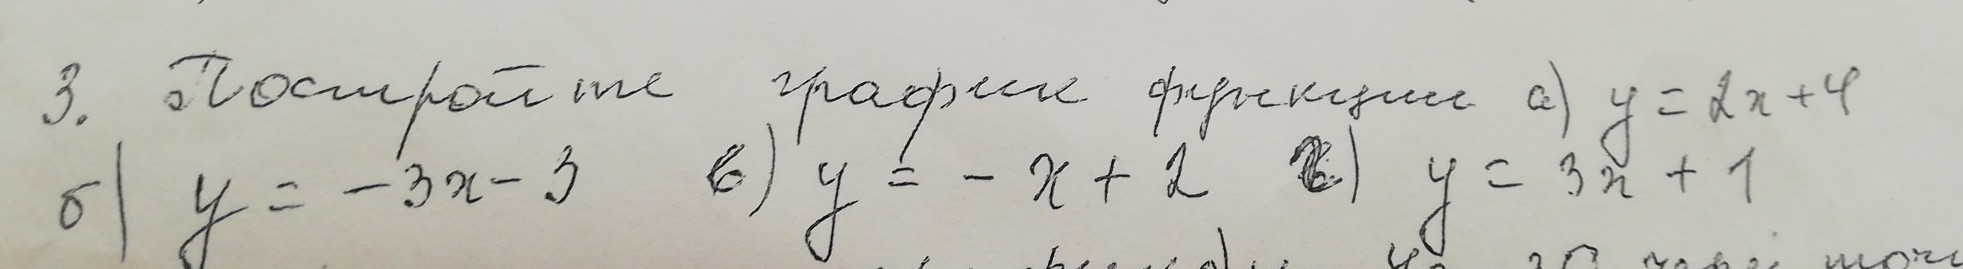 3. Постройте график функции а) y = 2x + 4
б) y = -3x - 3 в) y = -x + 2 г) y = 3x + 1